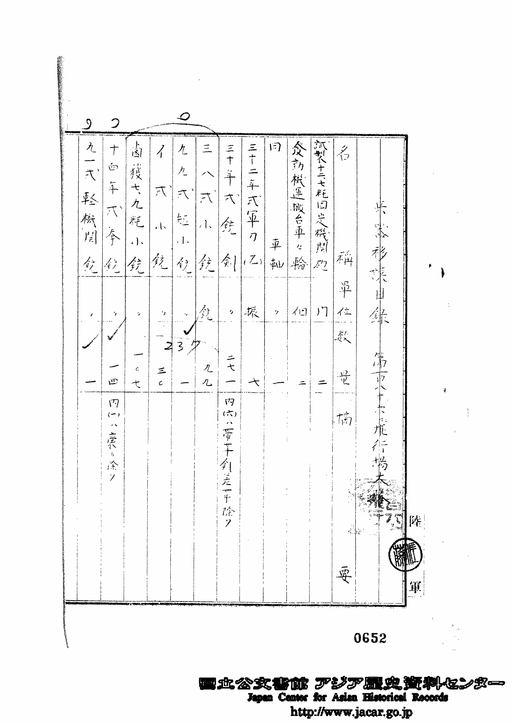 兵器移譲目録 第百八十六飛行場大隊
名称 単位 数量 摘要
試製十二、七粍固定機関砲 門 二
発動機運搬台車車輪 個 二
同 車軸 〃 一
三十二年式軍刀(乙) 振 七
三十年式銃剣 〃 二七一
三八式小銃 銃 九九
九九式短小銃 〃 一
イ式小銃 〃 三〇
鹵獲七、九粍小銃 〃 一〇七
237
十四年式拳銃 〃 一四
九一式軽機関銃 〃 一
陸軍
0652
国立公文書館 アジア歴史資料センター
Japan Center for Asian Historical Records
http://www.jacar.go.jp